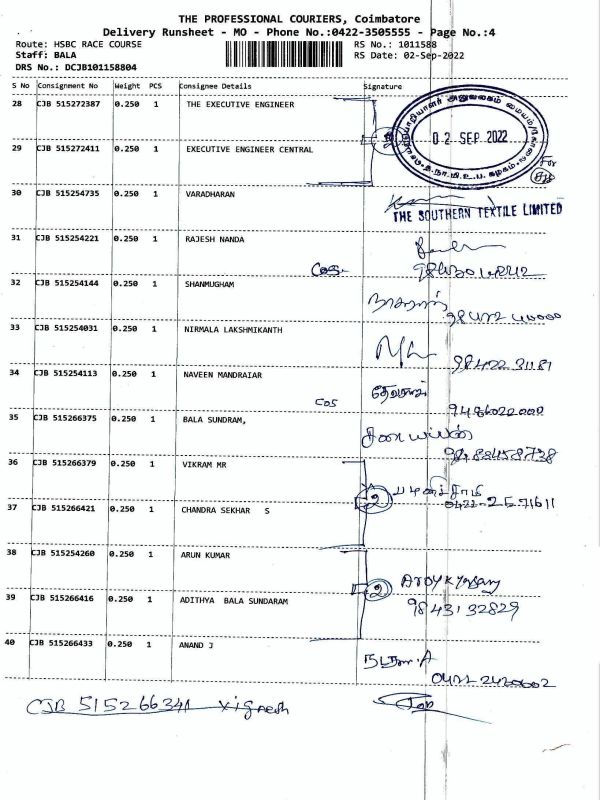 THE PROFESSIONAL COURIERS, Coimbatore
Delivery Runsheet - MO - Phone No.:0422-3505555 - Page No.:4
Route: HSBC RACE COURSE RS No.: 1011588
Staff: BALA RS Date: 02-Sep-2022
DRS No.: DCJB101158804
S No Consignment No Weight PCS Consignee Details Signature
28 CJB 515272387 0.250 1 THE EXECUTIVE ENGINEER
02 SEP 2022
29 CJB 515272411 0.250 1 EXECUTIVE ENGINEER CENTRAL
For
30 CJB 515254735 0.250 1 VARADHARAN
THE SOUTHERN TEXTILE LIMITED
31 CJB 515254221 0.250 1 RAJESH NANDA
32 CJB 515254144 0.250 1 SHANMUGHAM
33 CJB 515254031 0.250 1 NIRMALA LAKSHMIKANTH
98422 31181
34 CJB 515254113 0.250 1 NAVEEN MANDRAIAR
35 CJB 515266375 0.250 1 BALA SUNDRAM,
36 CJB 515266379 0.250 1 VIKRAM MR
2 பழனிச்சாமி
0422-2571611
37 CJB 515266421 0.250 1 CHANDRA SEKHAR S
38 CJB 515254260 0.250 1 ARUN KUMAR
2
39 CJB 515266416 0.250 1 ADITHYA BALA SUNDARAM
98431 32829
40 CJB 515266433 0.250 1 ANAND J
CJB 515266341 Vignesh